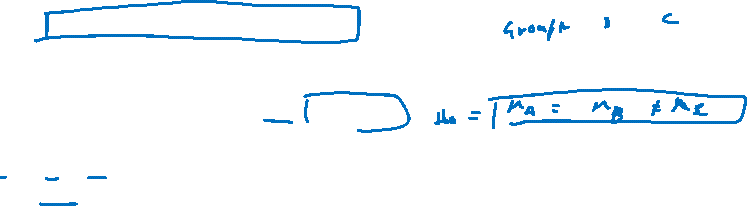 Group A , C
Ha = μA = μB ≠ μC